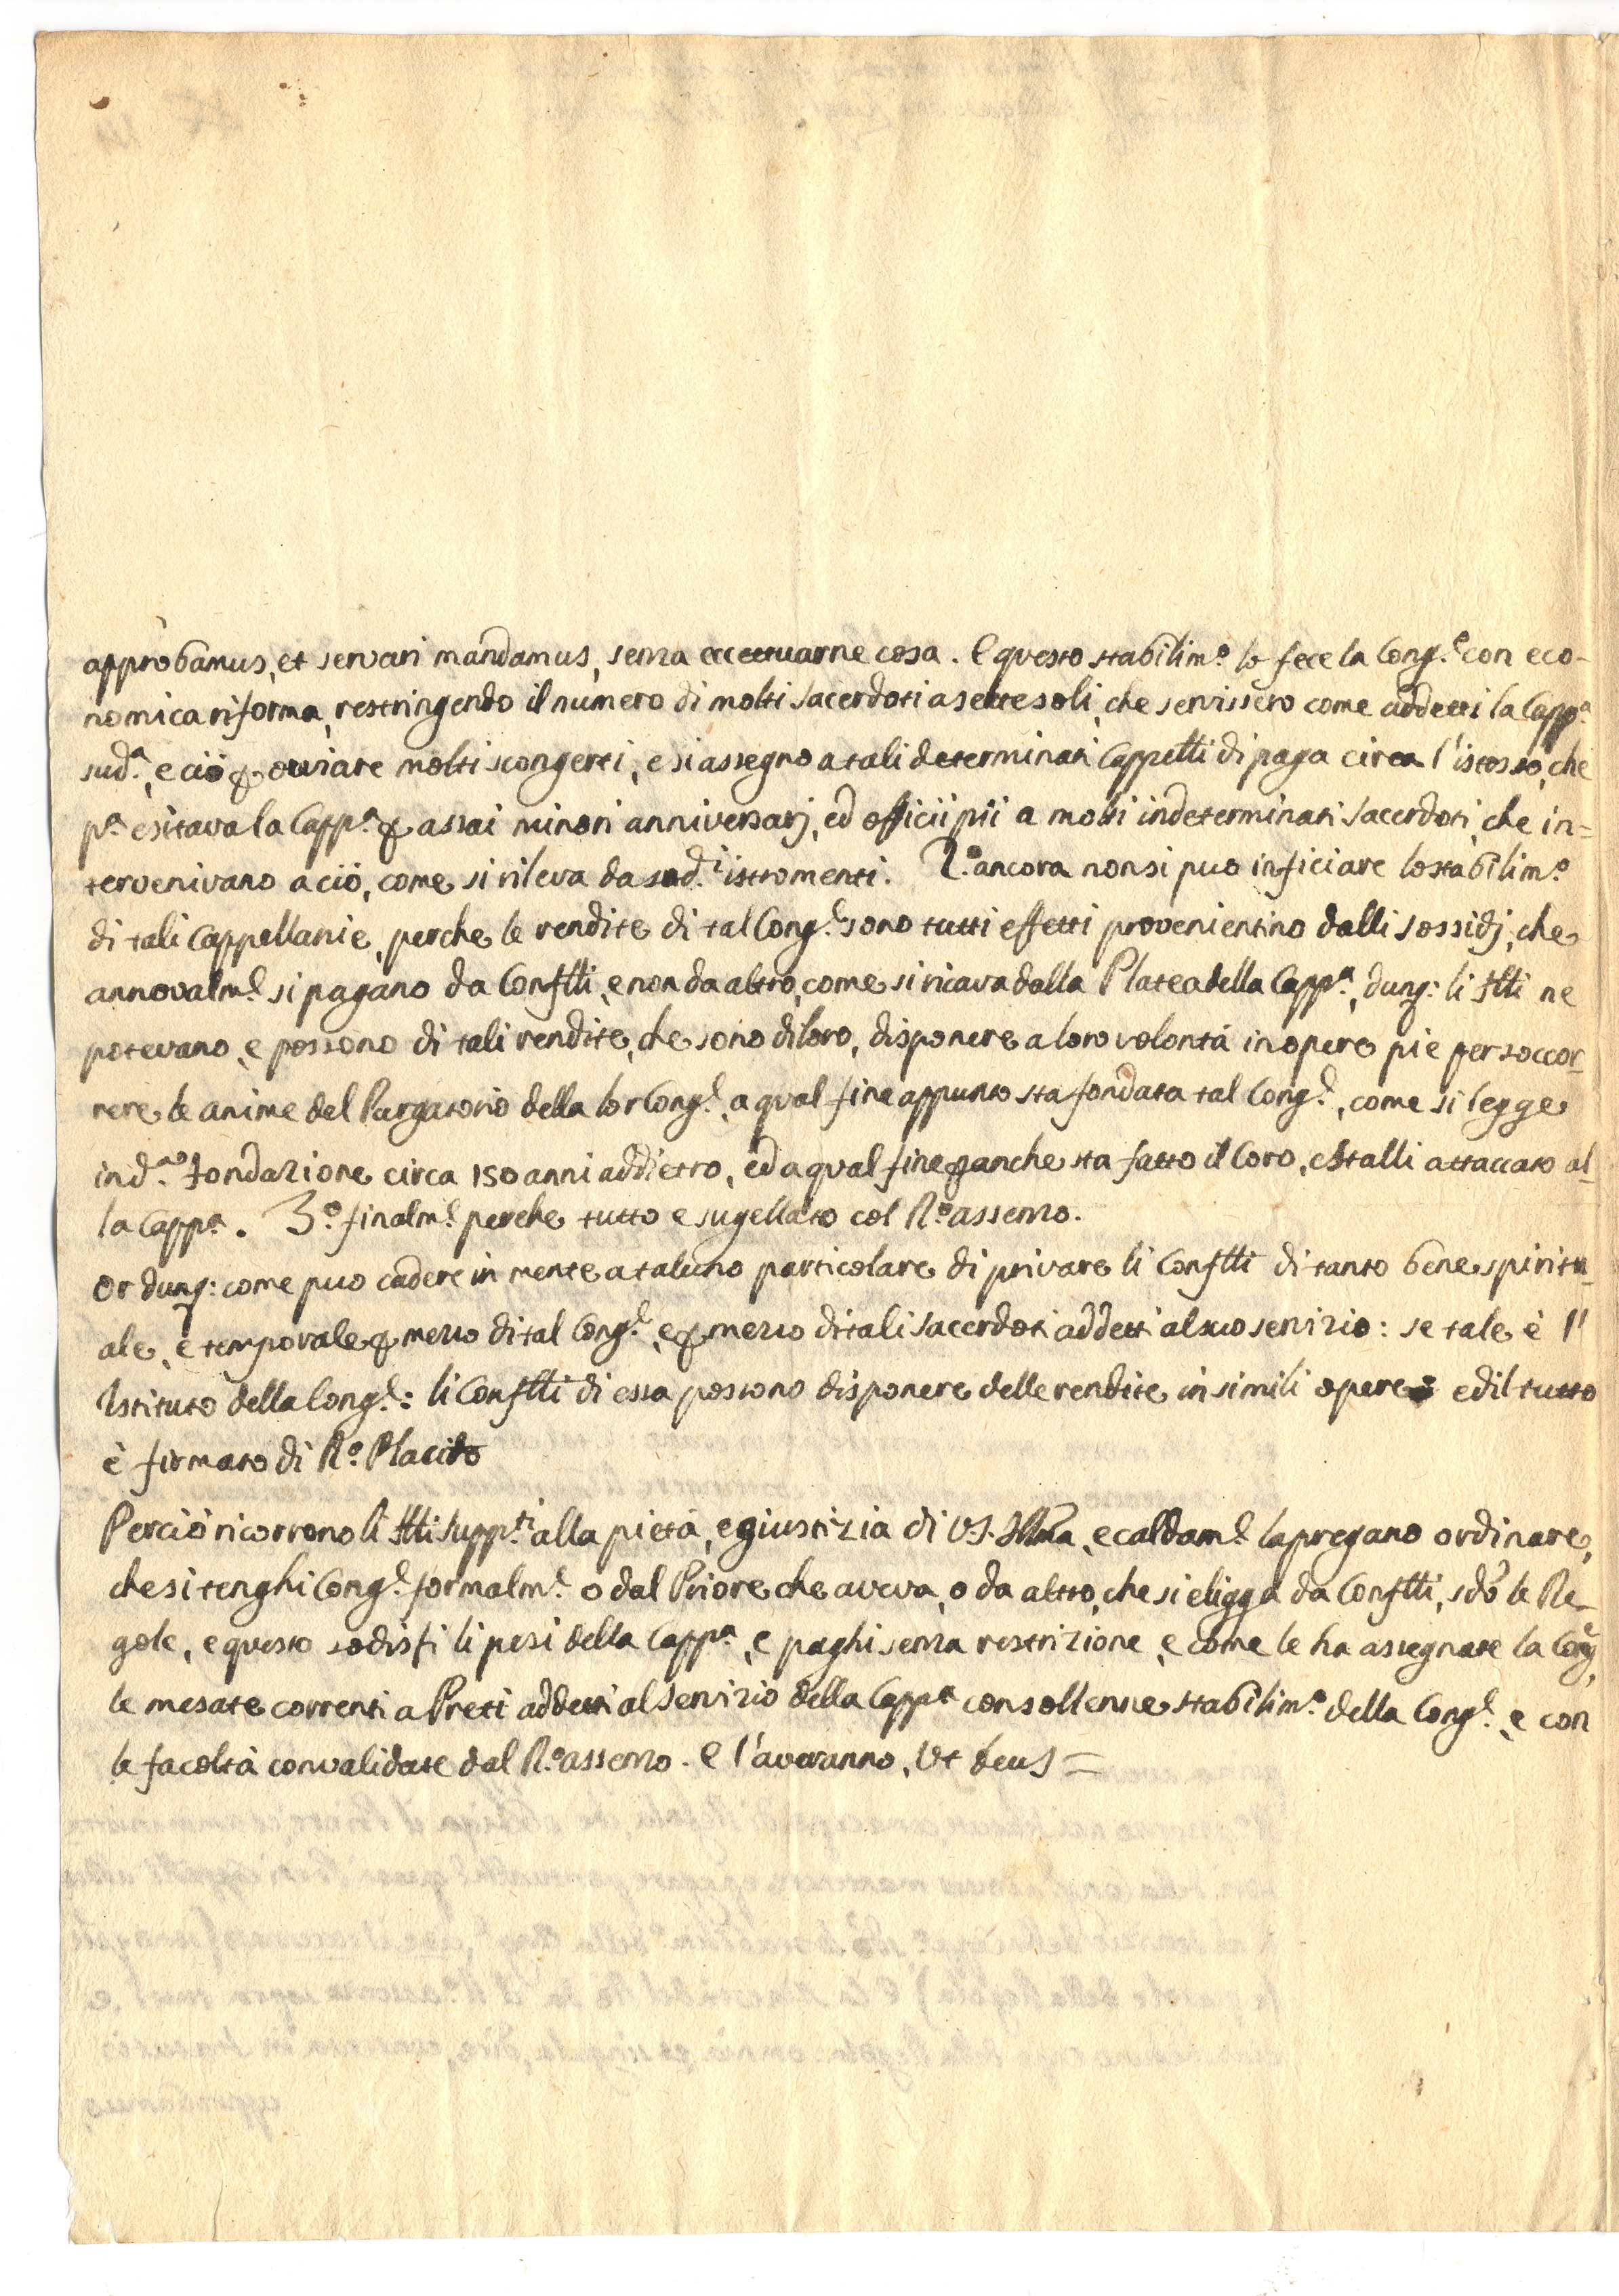 approbamus, et servari mandamus, senza eccettuarne cosa. E questo stabilim.º lo fece la Cong.e con eco-
nomica riforma, restringendo il numero di molti Sacerdoti a sette soli, che servissero come addetti la Capp.a
sud.a, e ciò ꝑ ovviare molti scongerti, e si assegno a tali determinati Cappelli di paga circa l'istesso, che
p.a esitava la Capp.a ꝑ assai minori anniversarj, ed officii pii a molti indeterminati Sacerdoti, che in=
tervenivano a ciò, come si rileva da sud.i istromenti. 2.º ancora non si puo inficiare lo stabilim.º
di tali Cappellanie, perche le rendite di tal Cong.e sono tutti effetti provenientino dalli sossidj, che
annovalm.e si pagano da Conflli, e non da altro, come si ricava dalla Platea della Capp.a, dunq: li flli ne
potevano, e possono di tali rendite, che sono di loro, disponere a loro volontà in opere pie per soccor-
rere le anime del Purgatorio della lor Cong.e, a qual fine appunto sta fondata tal Cong.e, come si legge
in d.a fondazione circa 150 anni addietro, ed a qual fine ꝑ anche sta fatto il Coro, e Stalli attaccato al-
la Capp.a. 3.º finalm.e perche tutto e sugellato col R.º assenzo.
Or dunq: come puo cadere in mente a taluno particolare di privare li Conflli di tanto bene spiritu-
ale, e temporale ꝑ mezzo di tal Cong.e, e ꝑ mezzo di tali Sacerdoti addetti al suo servizio: se tale è l'
Istituto della Cong.e: li Conflli di essa possono disponere delle rendite in simili opere ed il tutto
è firmato di R.º Placito
Perciò ricorrono li flli supp.ti alla pietà, e giustizia di V.S. Illma, e caldam.e la pregano ordinare,
che si tenghi Cong.e formalm.e o dal Priore che aveva, o da altro, che si eligga da Conflli, sdo le Re-
gole, e questo sodisfi li pesi della Capp.a, e paghi senza restrizione, e come le ha assegnate la Cong.e,
le mesate correnti a Preti addetti al servizio della Capp.a con sollenne stabilim.º della Cong.e, e con
le facoltà convalidate dal R.º assenzo. E l'averanno, Ut Deus =